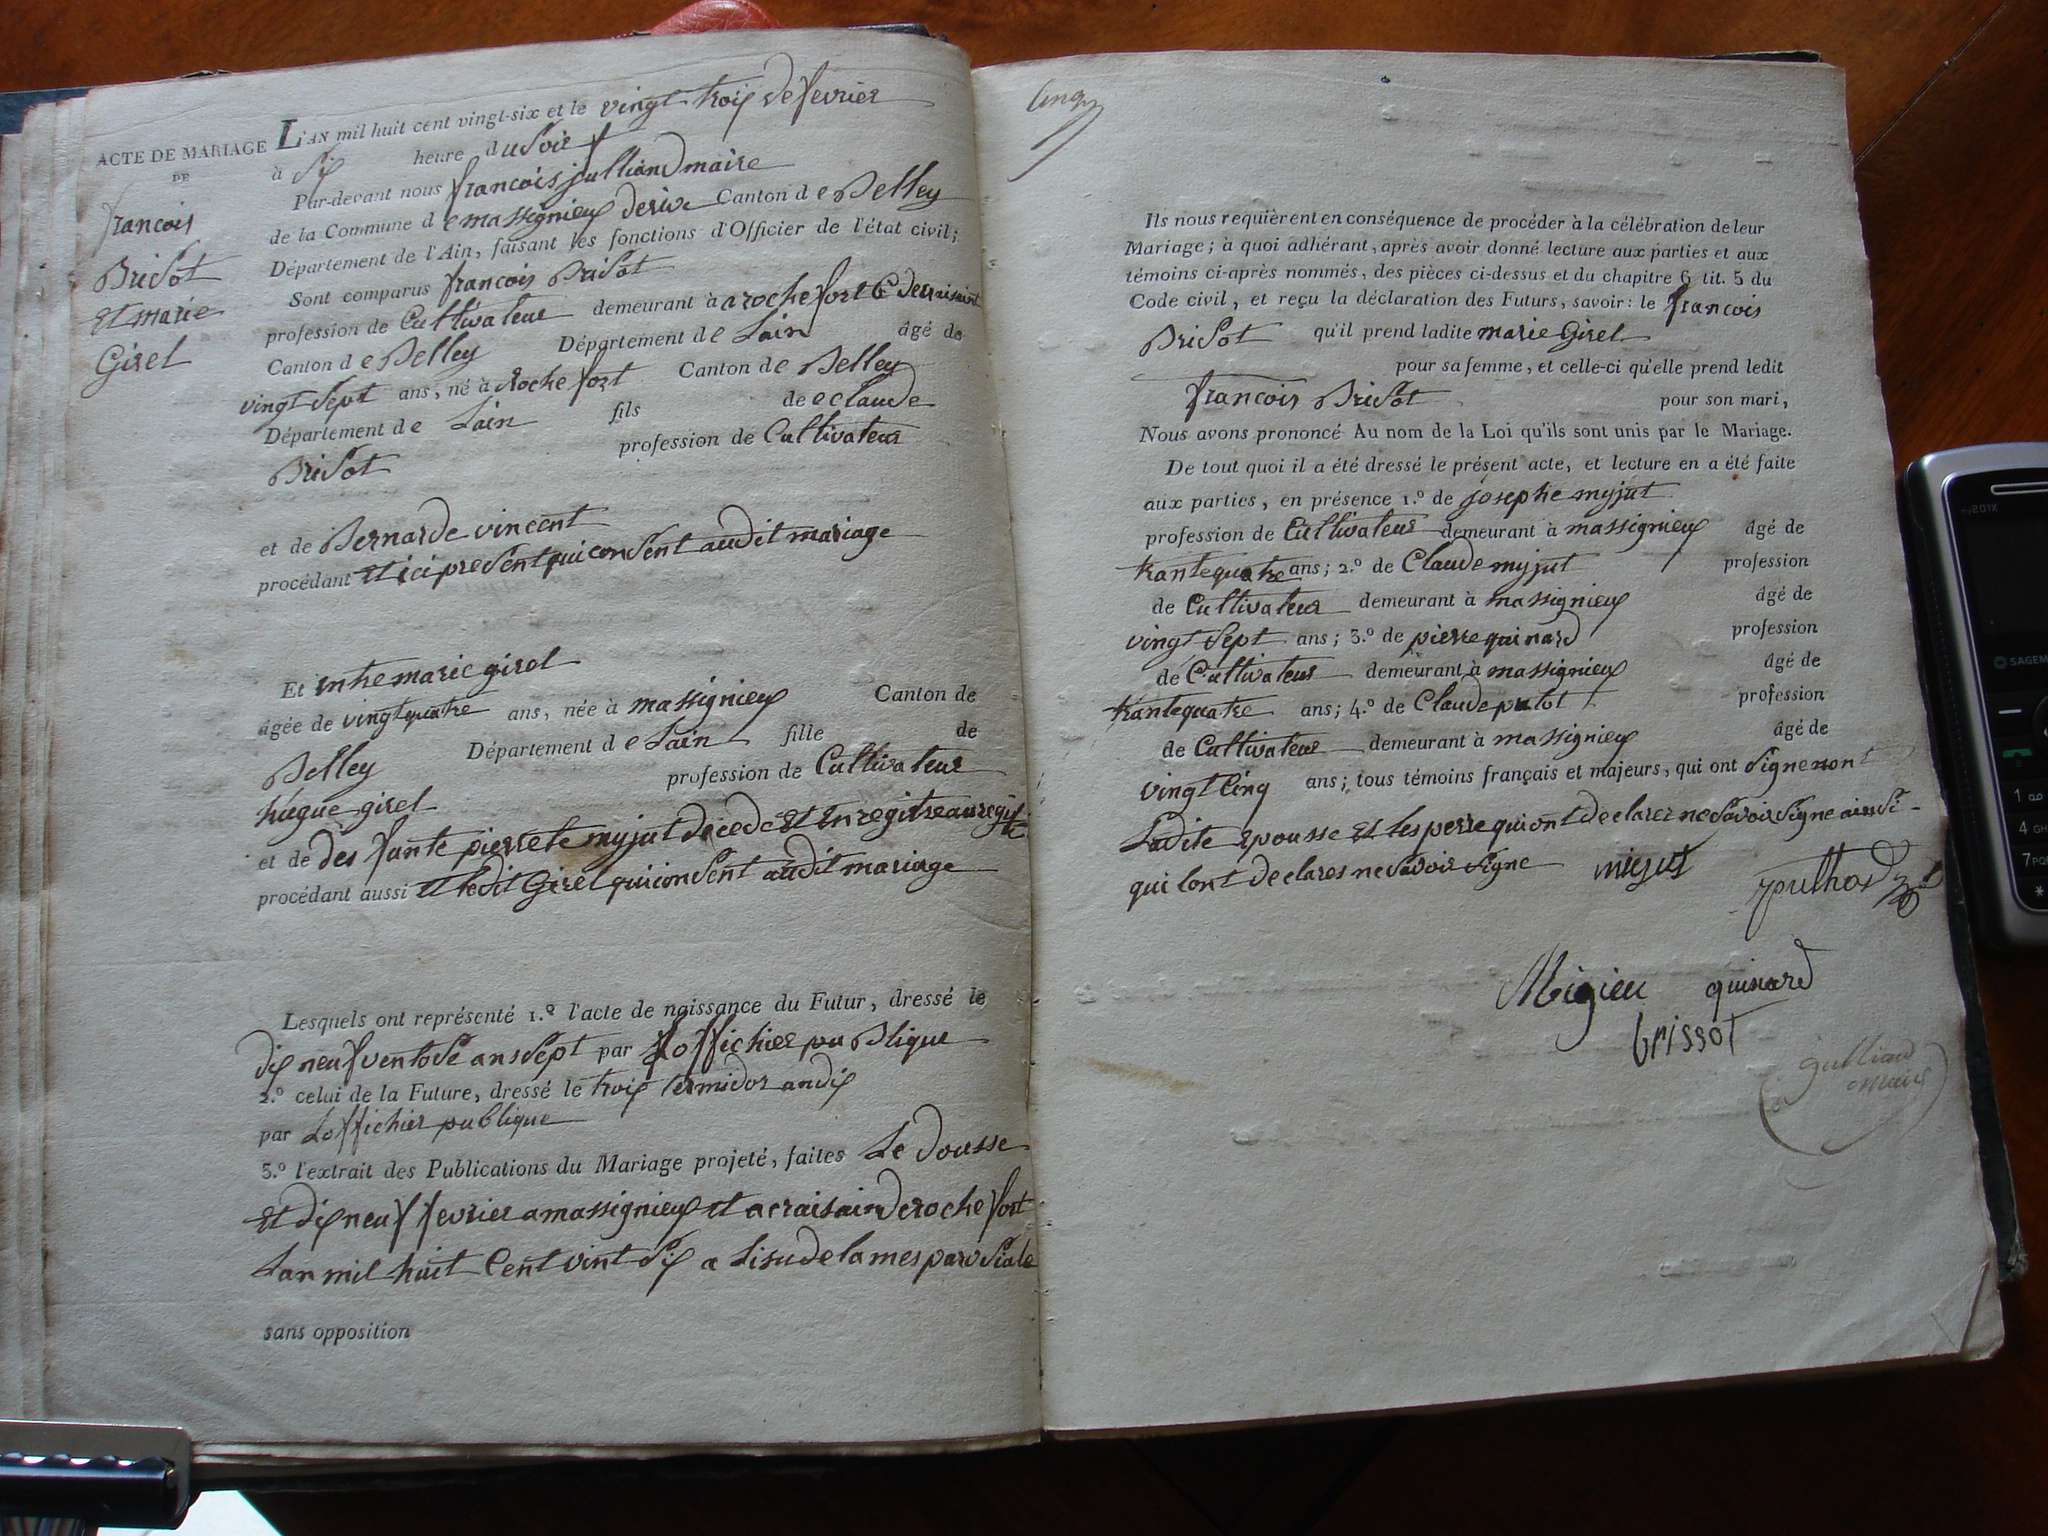 ACTE DE MARIAGE
DE
francois
Brisot
Et marie
Girel
L'AN mil huit cent vingt-six et le vingt trois de fevrier
à six heure du Soir
Par-devant nous francois julliand maire
de la Commune de massignieux derive Canton de Belley
Département de l'Ain, faisant les fonctions d'Officier de l'état civil;
Sont comparus francois Brisot
profession de Cultivateur demeurant à a rochefort
Canton de Belley Département de Lain âgé de
vingt Sept ans, né à Rochefort Canton de Belley
Département de Lain fils de e claude
Brisot profession de Cultivateur
et de Bernarde vincent
procédant Et ici present qui consent audit mariage
Et Entre marie girel
âgée de vingt quatre ans, née à massignieux Canton de
Belley Département de Lain fille de
hugue girel profession de Cultivateur
et de des fante pierrete myjut decede Et Enregitre au regis
procédant aussi Et ledit Girel qui consent audit mariage
Lesquels ont représenté 1.º l'acte de naissance du Futur, dressé le
dix neuf ventose an sept par Loffichier publique
2.º celui de la Future, dressé le trois termidor an dix
par Loffichier publique
3.º l'extrait des Publications du Mariage projeté, faites Le dousse
Et dix neuf fevrier a massignieux et a craisain de rochefort
Lan mil huit Cent vint Six a Lisu de la mes parosiale
sans opposition
cinq
Ils nous requièrent en conséquence de procéder à la célébration de leur
Mariage; à quoi adhérant, après avoir donné lecture aux parties et aux
témoins ci-après nommés, des pièces ci-dessus et du chapitre 6 tit. 5 du
Code civil, et reçu la déclaration des Futurs, savoir: le francois
Brisot qu'il prend ladite marie Girel
pour sa femme, et celle-ci qu'elle prend ledit
francois Brisot pour son mari,
Nous avons prononcé Au nom de la Loi qu'ils sont unis par le Mariage.
De tout quoi il a été dressé le présent acte, et lecture en a été faite
aux parties, en présence 1.º de josephe myjut
profession de Cultivateur demeurant à massignieux âgé de
trante quatre ans; 2.º de Claude myjut profession
de Cultivateur demeurant à massignieux âgé de
vingt Sept ans; 3.º de pierre quinard profession
de Cultivateur demeurant à massignieux âgé de
trante quatre ans; 4.º de Claude pulot profession
de Cultivateur demeurant à massignieux âgé de
vingt Cinq ans; tous témoins français et majeurs, qui ont Signe non
Ladite Epousse Et les perre qui ont declarer ne Savoir Signe ainsi
qui lont declares ne Savoir Signe migut
Migieu quinard
brissot
julliand
maire